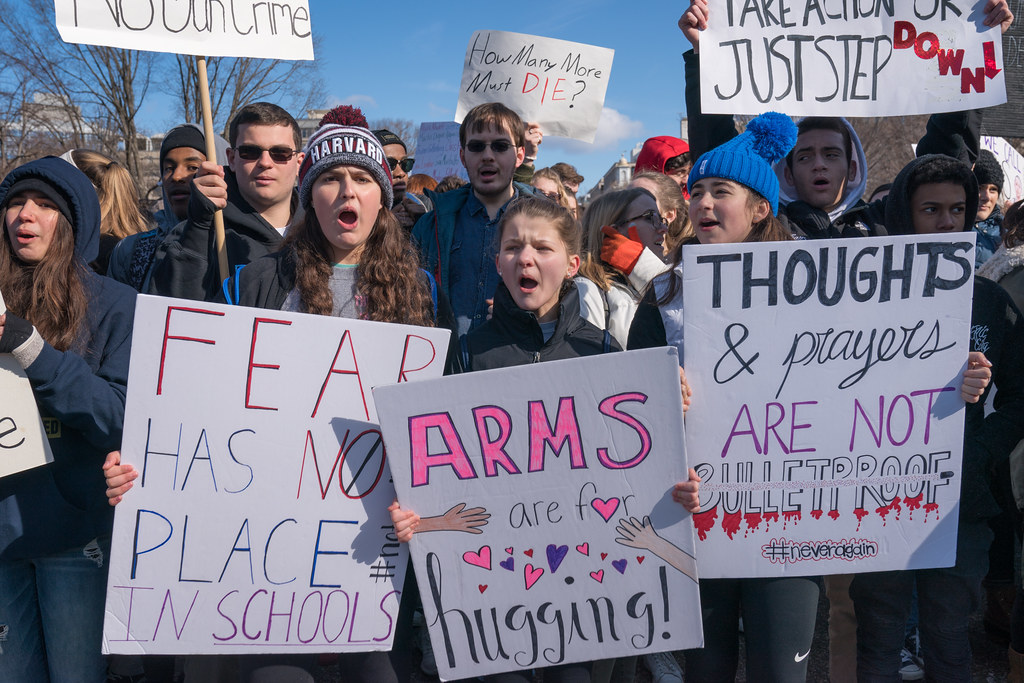 No Gun Crime
How Many More
Must DIE?
TAKE ACTION OR
JUST STEP DOWN
HARVARD
FEAR
HAS NO
PLACE
IN SCHOOLS
ARMS
are for
hugging!
THOUGHTS
& prayers
ARE NOT
BULLETPROOF
#neveragain